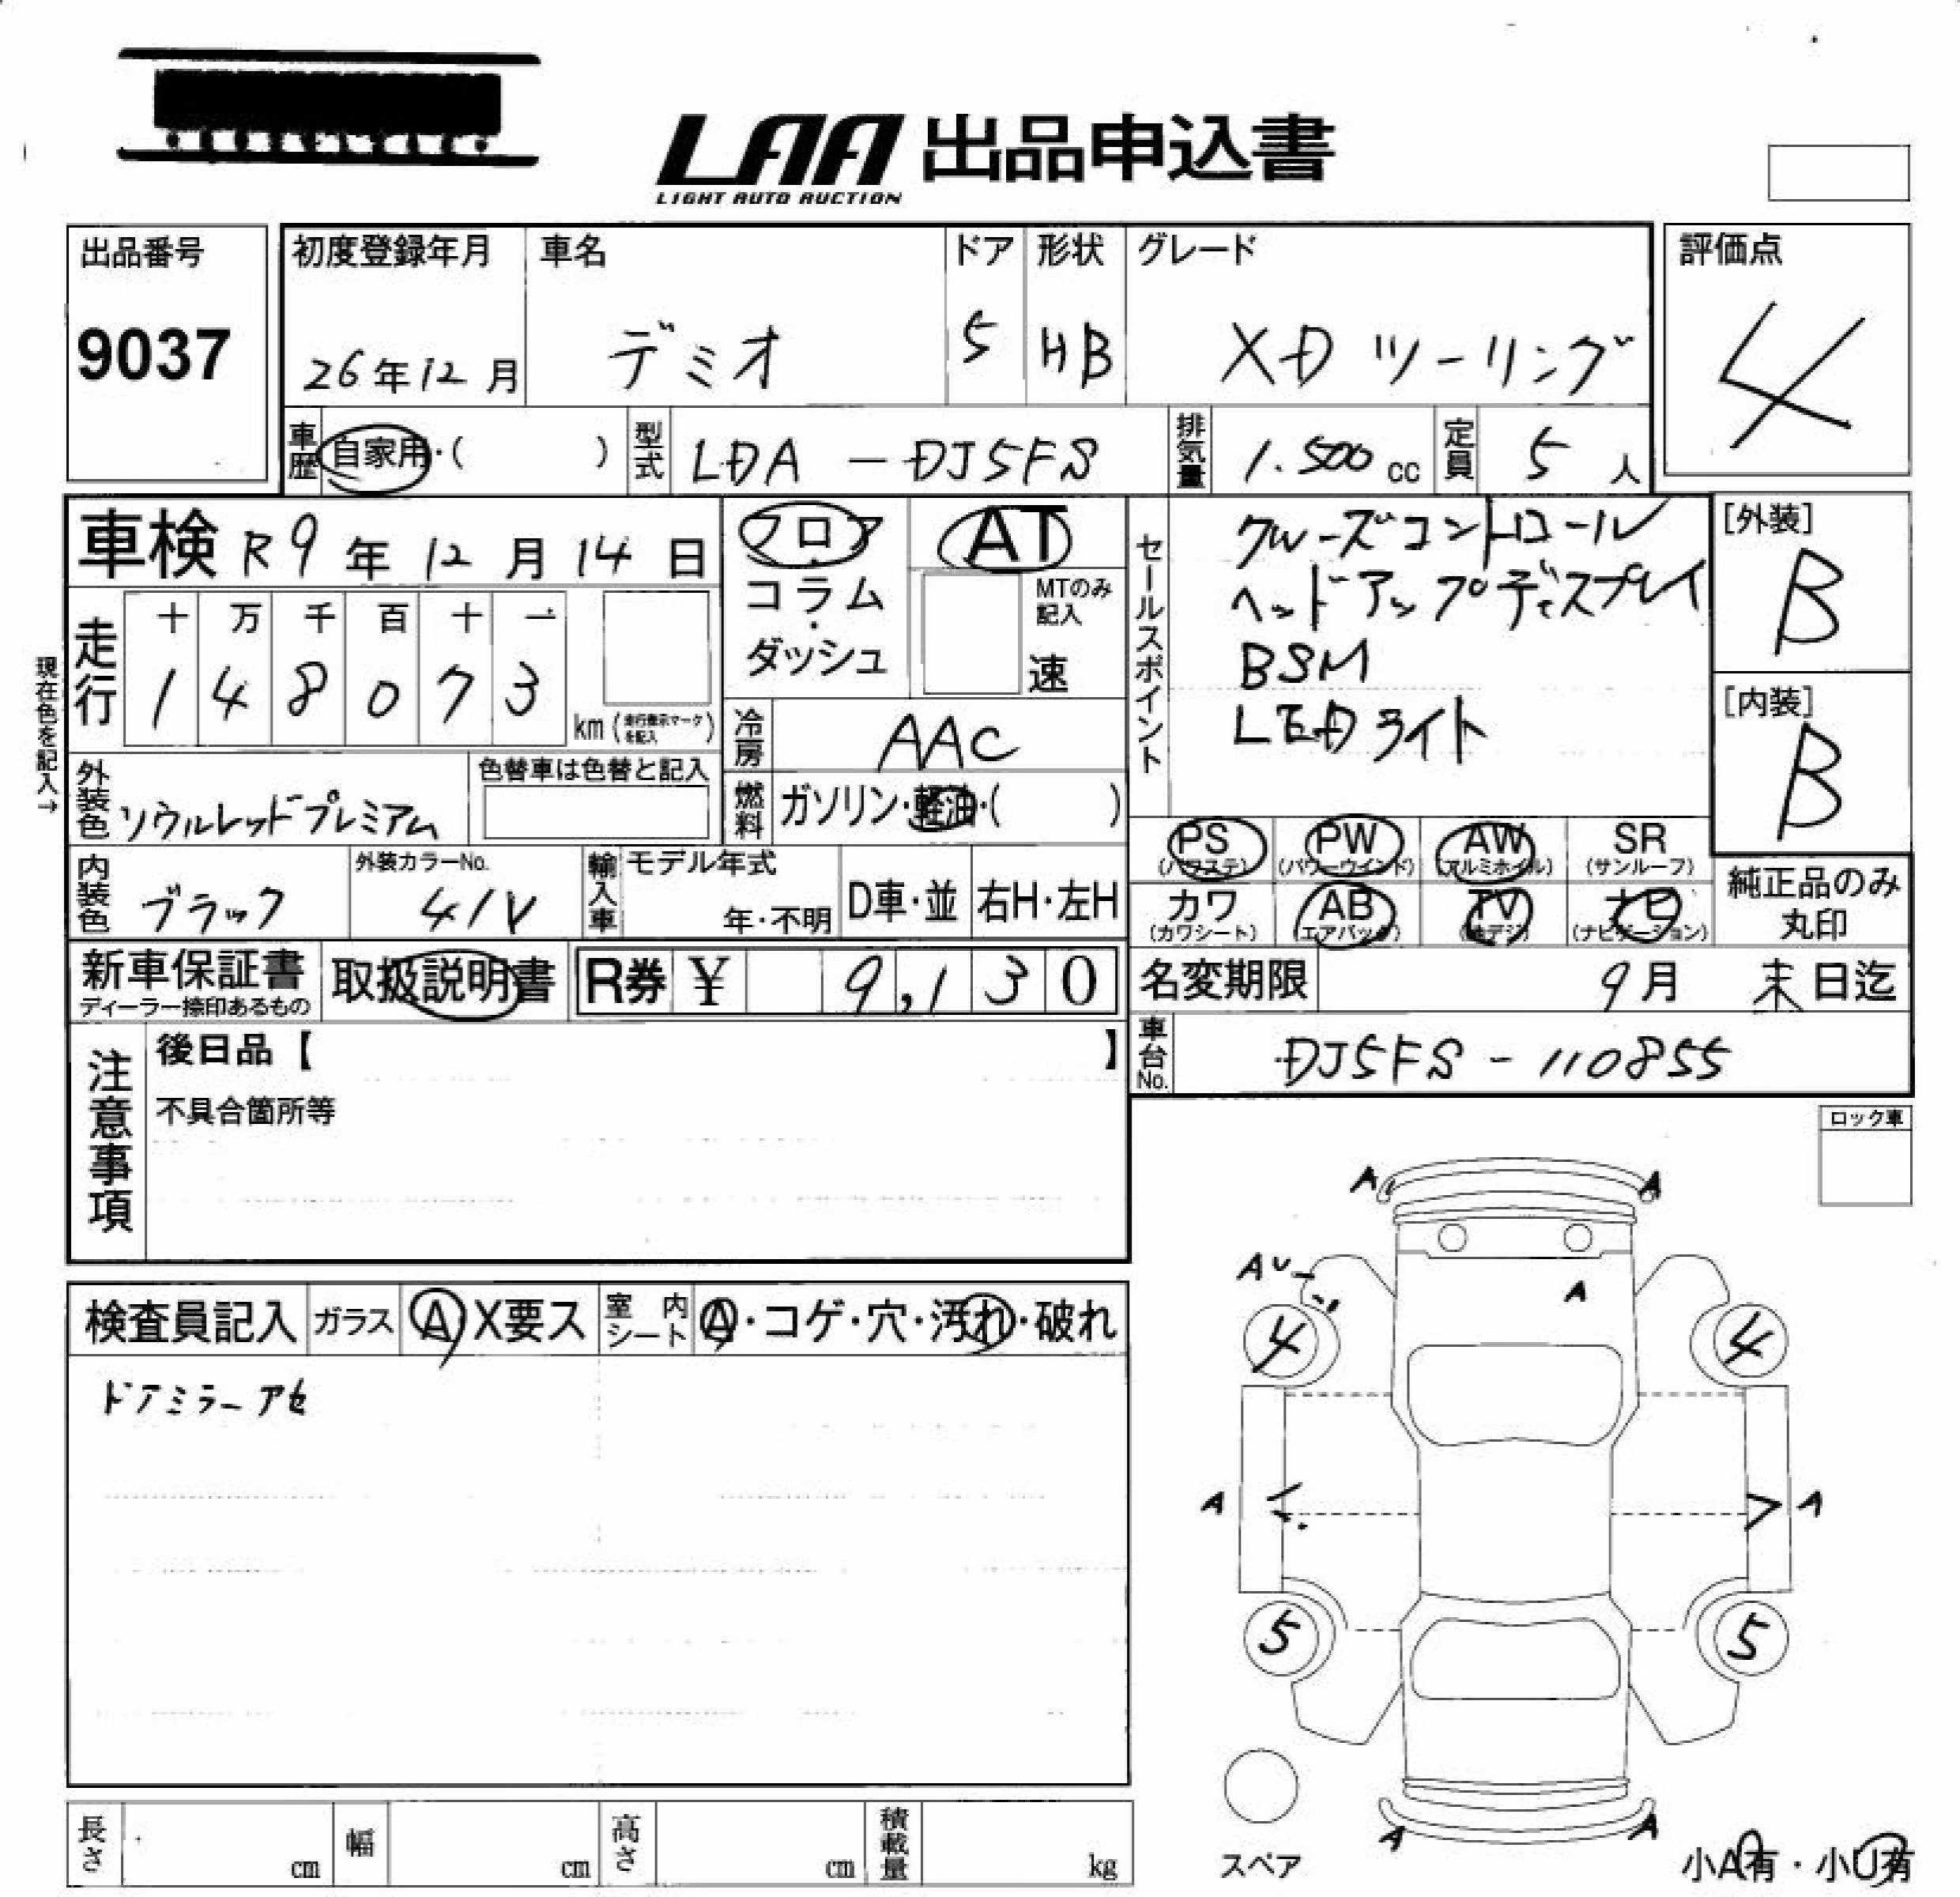 LAA 出品申込書
LIGHT AUTO AUCTION
出品番号
9037
初度登録年月
26年12月
車名
デミオ
ドア
5
形状
HB
グレード
XD ツーリング
評価点
4
車歴
自家用・( )
型式
LDA - DJ5FS
排気量
1.500 cc
定員
5 人
車検 R9年12月14日
フロア・コラム・ダッシュ
AT
MTのみ記入
速
セールスポイント
クルーズコントロール
ヘッドアップディスプレイ
BSM
LEDライト
[外装]
B
[内装]
B
現在色を記入→
走行
十 万 千 百 十 一
1 4 8 0 7 3
km (走行表示マークを記入)
冷房
AAC
外装色
ソウルレッドプレミアム
色替車は色替と記入
燃料
ガソリン・軽油・( )
PS (パワステ)
PW (パワーウインド)
AW (アルミホイル)
SR (サンルーフ)
カワ (カワシート)
AB (エアバック)
TV (地デジ)
ナビ (ナビゲーション)
純正品のみ丸印
内装色
ブラック
外装カラーNo.
41V
輸入車
モデル年式
年・不明
D車・並
右H・左H
新車保証書
ディーラー捺印あるもの
取扱説明書
R券 ¥ 9,130
名変期限
9月 末日迄
車台No.
DJ5FS - 110855
注意事項
後日品【 】
不具合箇所等
ロック車
検査員記入
ガラス
A X要ス
室内シート
A・コゲ・穴・汚れ・破れ
ドアミラーアセ
A A
AU
A
4 4
A A
5 5
A A
スペア
小A有・小U有
長さ cm
幅 cm
高さ cm
積載量 kg